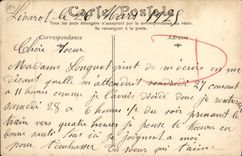 Livarot le 26 Mars 19
Carte Postale
Tous les pays étrangers n'acceptent pas la correspondance au recto.
Se renseigner à la poste.
Correspondance
Adresse
Chère Soeur
Madame Longuet vient de m'écrire en me
disant qu'elle m'attendait vendredi 27 courant
à 11 heures comme je t'avais dédité donc je rentrerai
samedi 28 à 6 heures du soir prenant le
train vers quatre heures je pense te trouver en
bonne santé tous ici se joignent à moi
pour t'embrasser ta soeur qui t'aime